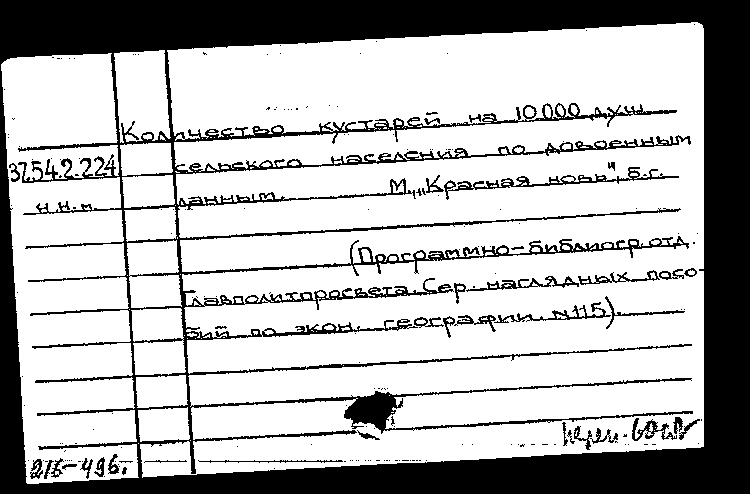 Количество кустарей на 10000 душ
37.54.2.224 сельского населения по довоенным
н.н.м. данным. М., „Красная новь", б.г.
(Программно-библиогр. отд.
Главполитпросвета. Сер. наглядных посо-
бий по экон. географии. N 115).
216-496.